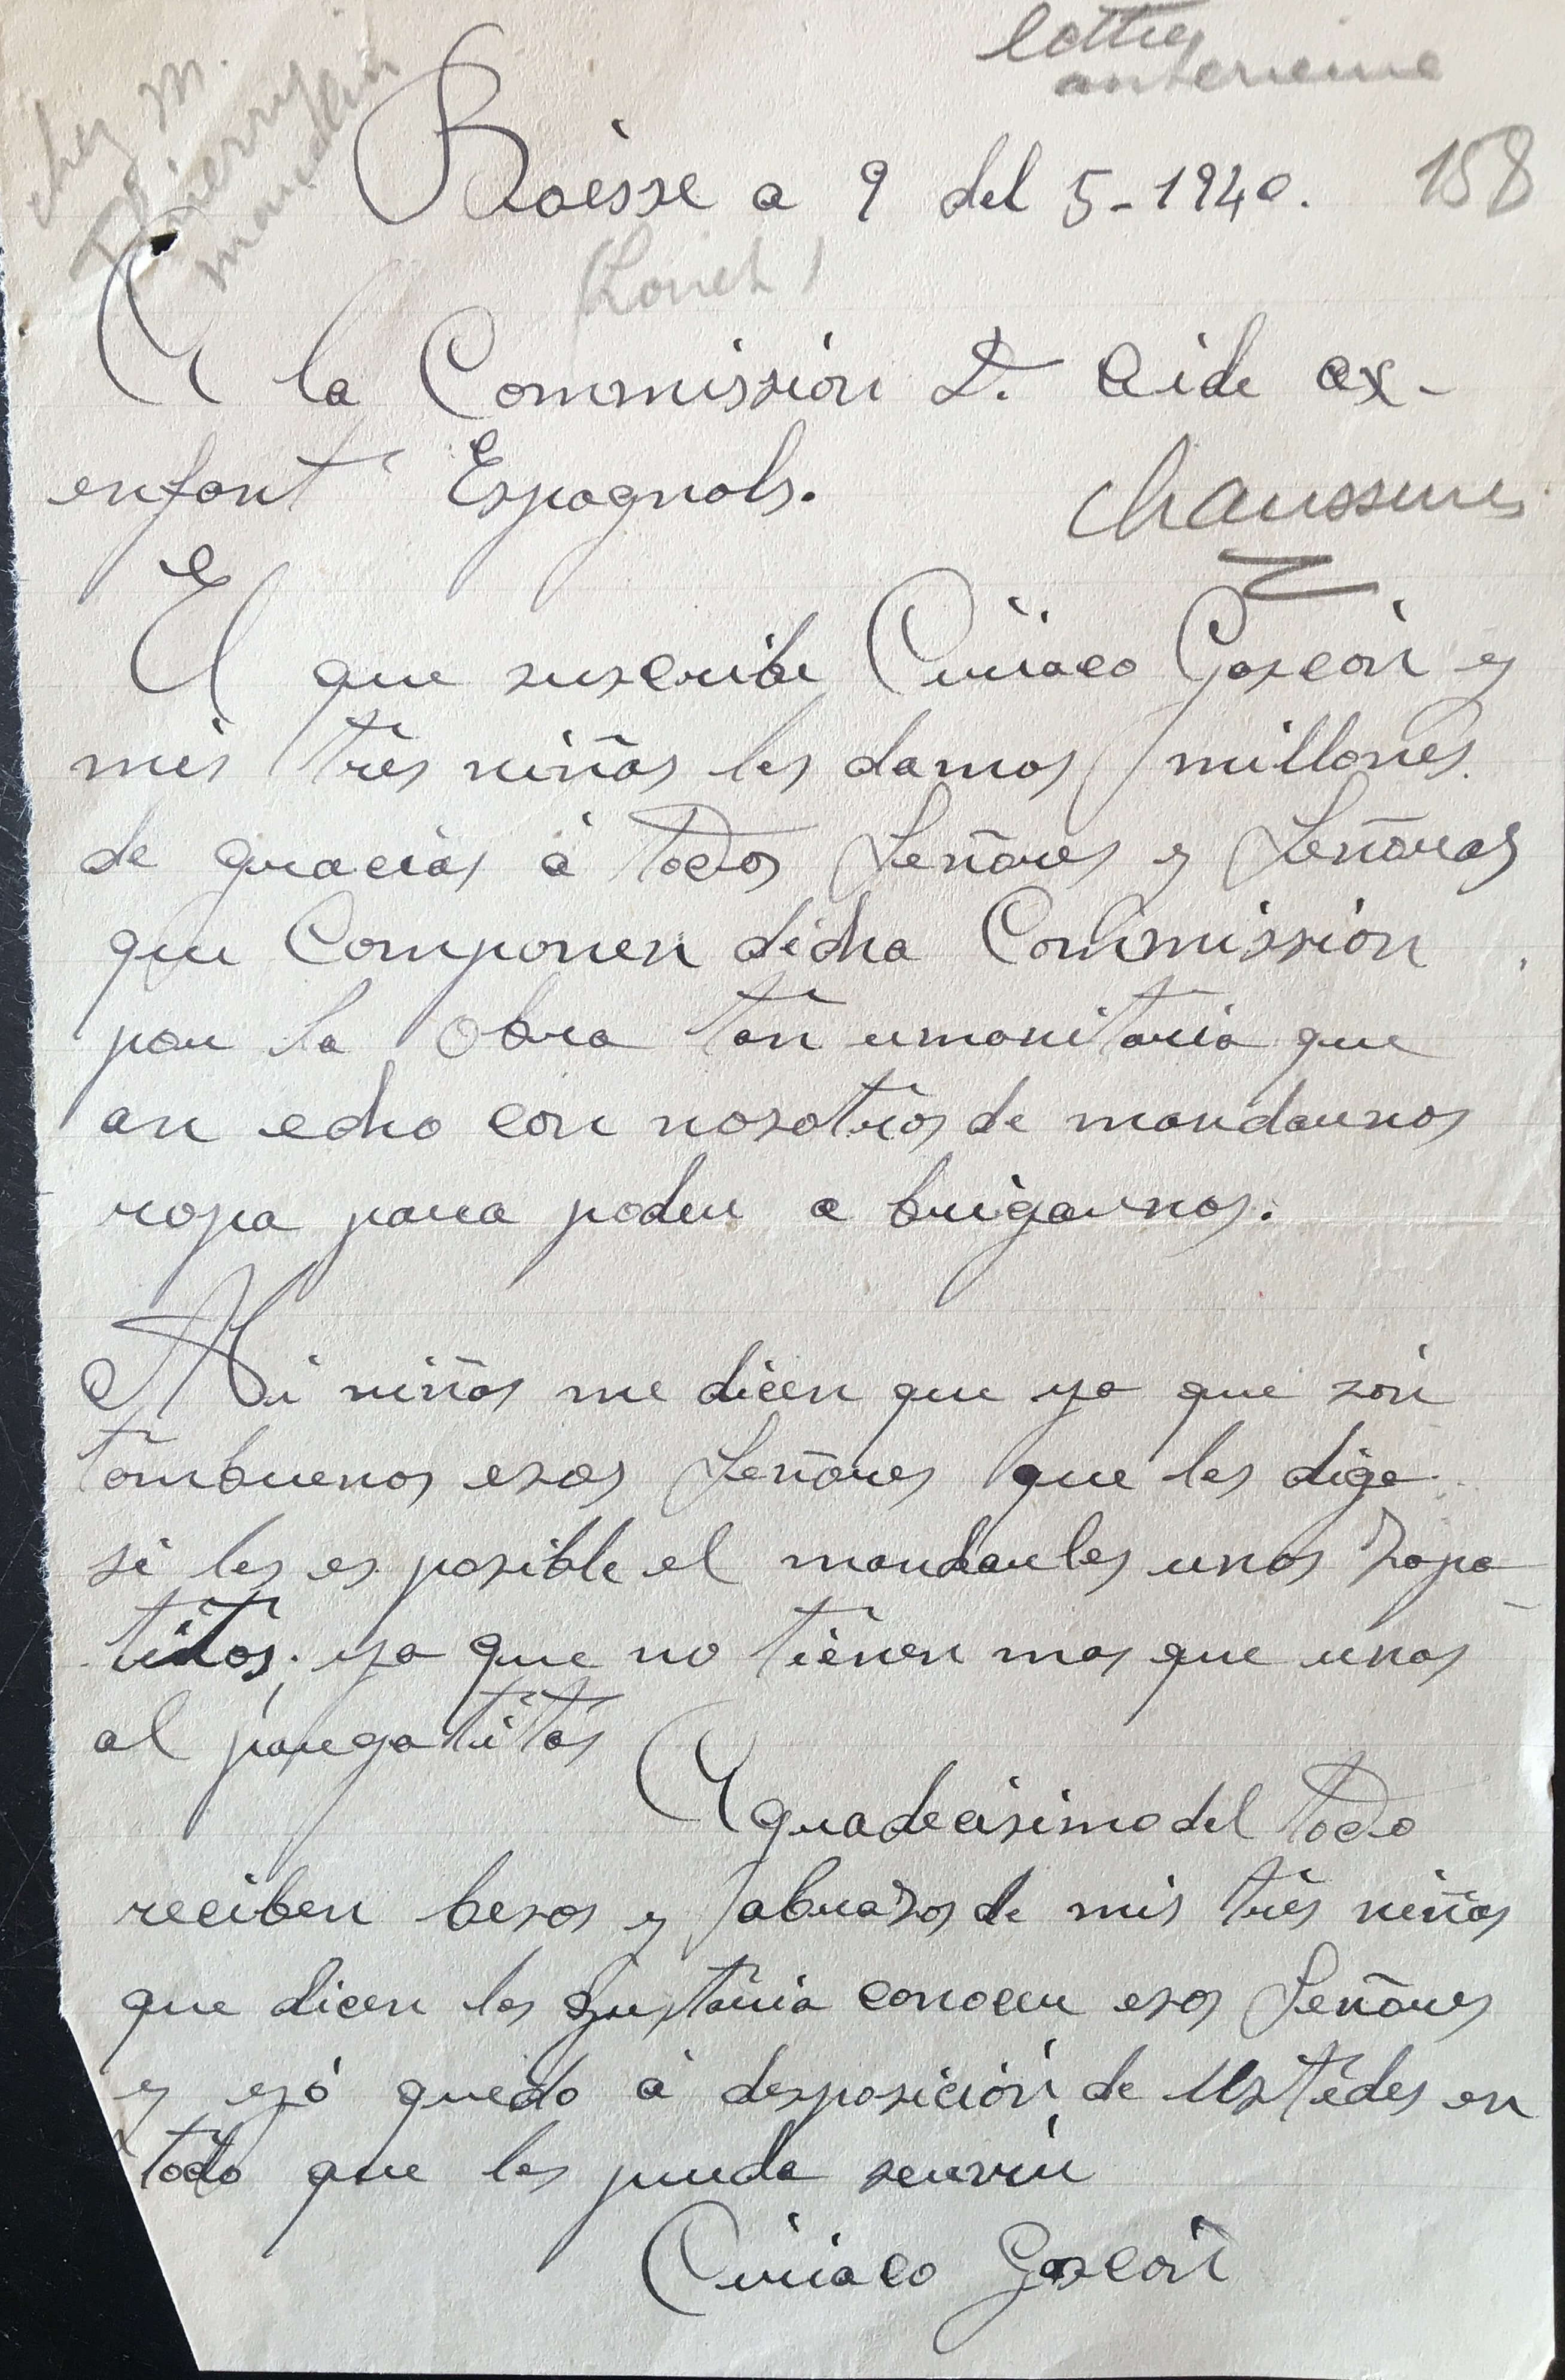 lettre
anterieure
chez M.
Thierry
Boèsse a 9 del 5-1940. 158
(Loiret)
A la Commissión D. Aide ax-
enfant Espagnols.
chaussures
El que suscribe Ciriaco Gascón y
mis tres niños les damos millones
de gracias à todos Señores y Señoras
que Componen dicha Commissión
por la Obra tan umanitaria que
an echo con nosotros de mandarnos
ropa para poder a brigarnos.
Mi niños me dicen que ya que són
tambuenos esos Señores que les diga
si les es posible el mandarles unos Zapa-
titos, ya que no tienen mas que unas
al pargatitas
Agradecisimo del todo
reciben besos y abrazos de mis tres niños
que dicen les gustaria conocer esos Señores
y yó quedo à desposición de Ustedes en
todo que les pueda servir
Ciriaco Gascón